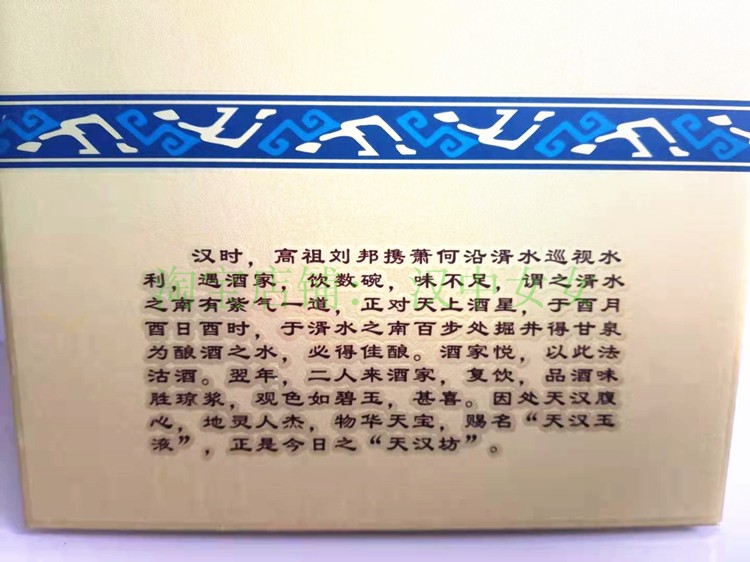 汉时，高祖刘邦携萧何沿湑水巡视水
利，遇酒家，饮数碗，味不足，谓之湑水
之南有紫气一道，正对天上酒星，于酉月
酉日酉时，于湑水之南百步处掘井得甘泉
为酿酒之水，必得佳酿。酒家悦，以此法
沽酒。翌年，二人来酒家，复饮，品酒味
胜琼浆，观色如碧玉，甚喜。因处天汉腹
心，地灵人杰，物华天宝，赐名“天汉玉
液”，正是今日之“天汉坊”。
淘宝店铺：汉中女女